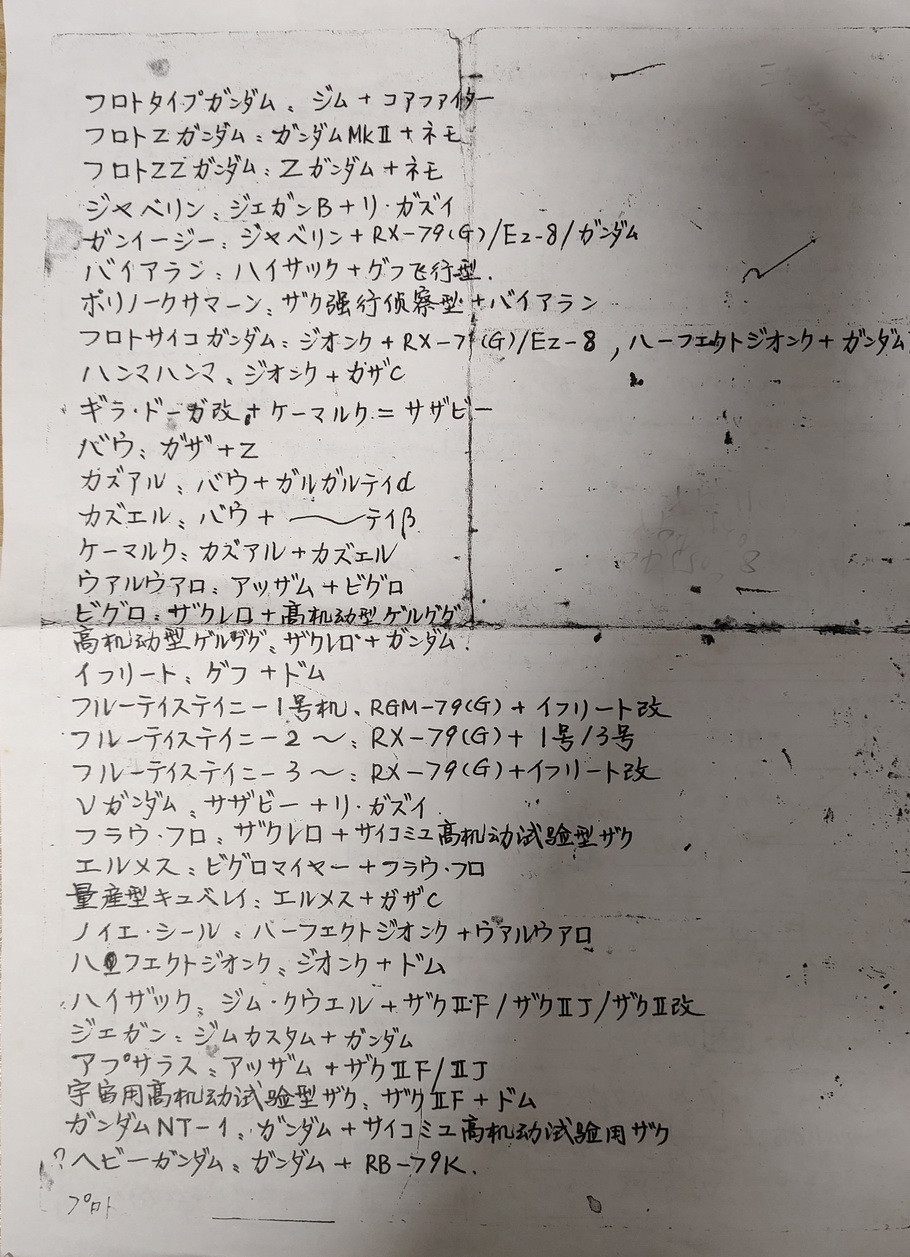 フロトタイプガンダム: ジム+コアファイター
フロトZガンダム: ガンダムMkⅡ+ネモ
フロトZZガンダム: Zガンダム+ネモ
ジャベリン: ジェガンB+リ・ガズイ
ガンイージー: ジャベリン+RX-79(G)/Ez-8/ガンダム
バイアラン: ハイザック+グフ飞行型.
ボリノークサマーン: ザク强行侦察型+バイアラン
フロトサイコガンダム: ジオンク+RX-7(G)/Ez-8, ハーフェクトジオンク+ガンダム
ハンマハンマ: ジオンク+ガザC
ギラ・ドーガ改+ケーマルク=サザビー
バウ: ガザ+Z
カズアル: バウ+ガルガルティα
カズエル: バウ+〜ティβ
ケーマルク: カズアル+カズエル
ヴァルヴァロ: アッザム+ビグロ
ビグロ: ザクレロ+高机动型ゲルググ
高机动型ゲルググ: ザクレロ+ガンダム.
イフリート: グフ+ドム
フルーティスティニー1号机: RGM-79(G)+イフリート改
フルーティスティニー2〜: RX-79(G)+1号/3号
フルーティスティニー3〜: RX-79(G)+イフリート改
νガンダム: サザビー+リ・ガズイ
フラウ・フロ: ザクレロ+サイコミュ高机动试验型ザク
エルメス: ビグロマイヤー+フラウ・フロ
量産型キュベレイ: エルメス+ガザC
ノイエ・シール: ハーフェクトジオンク+ヴァルヴァロ
ハーフェクトジオンク: ジオンク+ドム
ハイザック: ジム・クウエル+ザクⅡF/ザクⅡJ/ザクⅡ改
ジェガン: ジムカスタム+ガンダム
アプサラス: アッザム+ザクⅡF/ⅡJ
宇宙用高机动试验型ザク: ザクⅡF+ドム
ガンダムNT-1: ガンダム+サイコミュ高机动试验用ザク
?ヘビーガンダム: ガンダム+RB-79K.
プロト